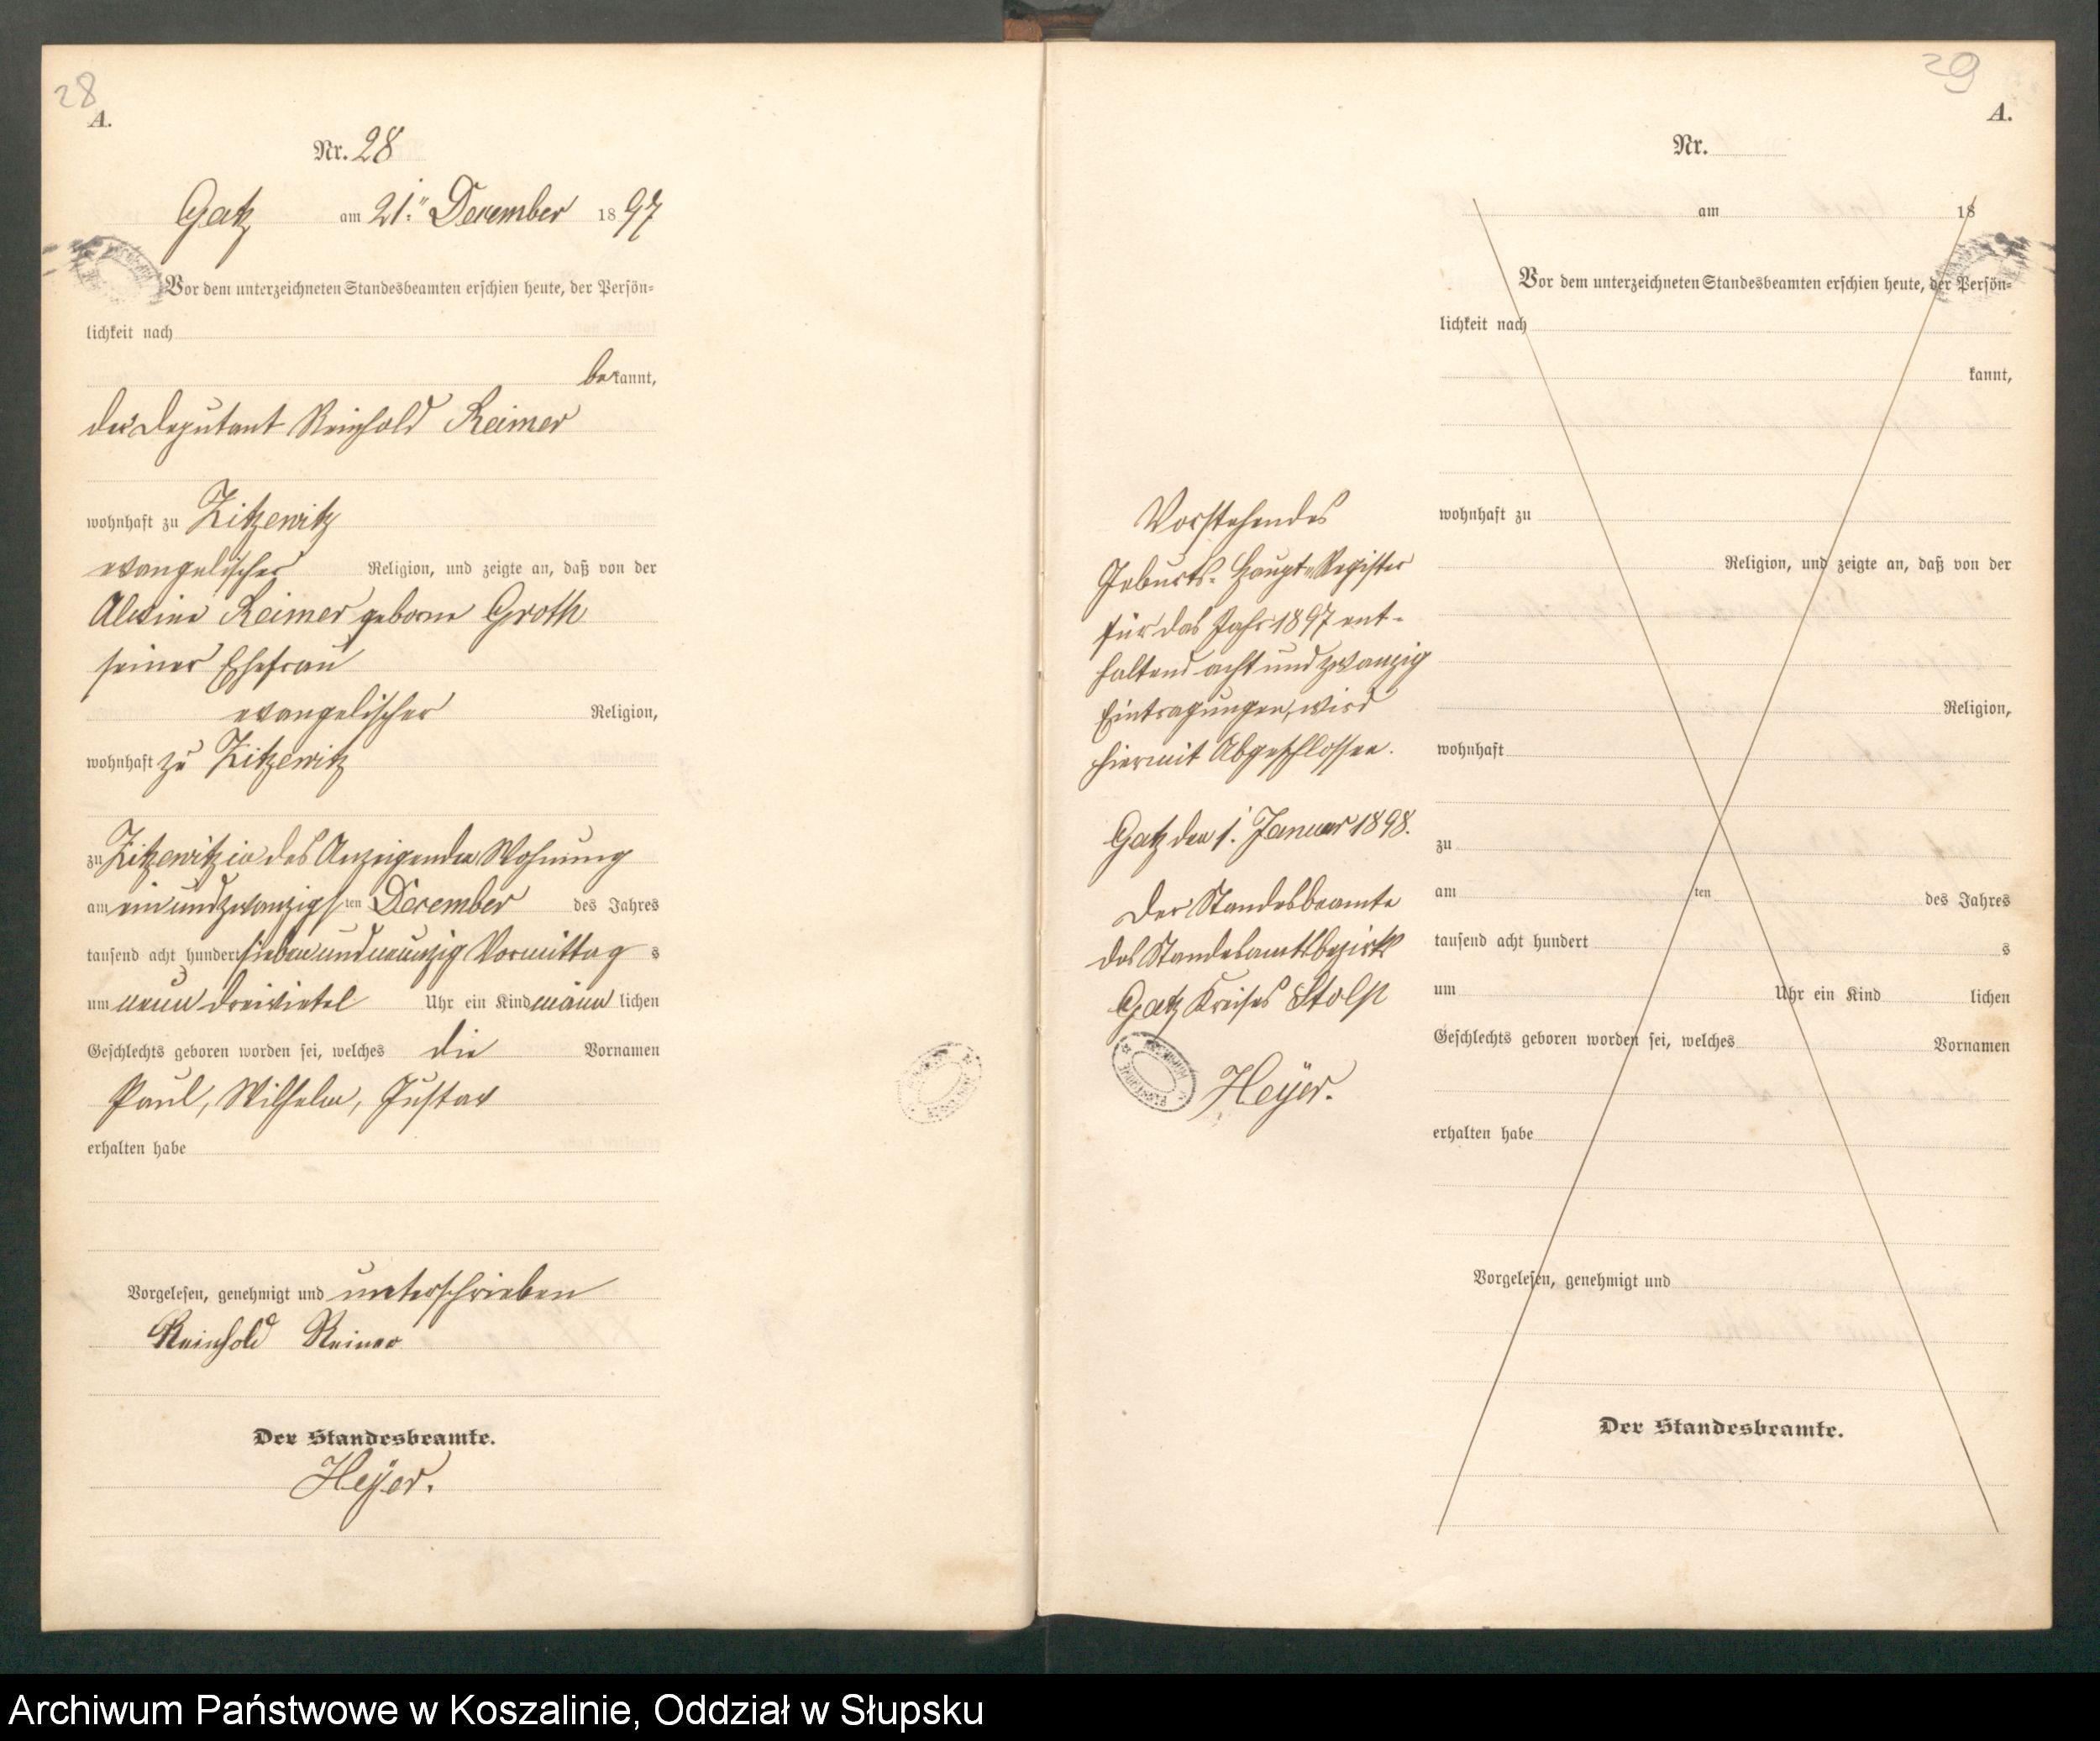 28
A.
Nr. 28
Gatz am 21.ten December 1897
Vor dem unterzeichneten Standesbeamten erschien heute, der Persön-
lichkeit nach
bekannt,
der Deputant Reinhold Reimer
wohnhaft zu Zitzewitz
evangelischer Religion, und zeigte an, daß von der
Reimer geborne Groth
seiner Ehefrau
evangelischer Religion,
wohnhaft zu Zitzewitz
zu Zitzewitz in des Anzeigenden Wohnung
am einundzwanzigsten December des Jahres
tausend acht hundert sieben und neunzig Vormittags
um neun dreiviertel Uhr ein Kind männlichen
Geschlechts geboren worden sei, welches die Vornamen
Paul, Wilhelm, Gustav
erhalten habe
Vorgelesen, genehmigt und unterschrieben
Reinhold Reimer
Der Standesbeamte.
Heyer.
29
A.
Nr.
am 18
Vor dem unterzeichneten Standesbeamten erschien heute, der Persön-
lichkeit nach
kannt,
wohnhaft zu
Religion, und zeigte an, daß von der
Religion,
wohnhaft
zu
am ten des Jahres
tausend acht hundert s
um Uhr ein Kind lichen
Geschlechts geboren worden sei, welches Vornamen
erhalten habe
Vorgelesen, genehmigt und
Der Standesbeamte.
Vorstehendes
Geburts-Haupt-Register
für das Jahr 1897 ent-
haltend acht und zwanzig
Eintragungen, wird
hiermit Abgeschlossen.
Gatz den 1. Januar 1898.
Der Standesbeamte
des Standesamtsbezirks
Gatz Kreises Stolp
Heyer.
Archiwum Państwowe w Koszalinie, Oddział w Słupsku